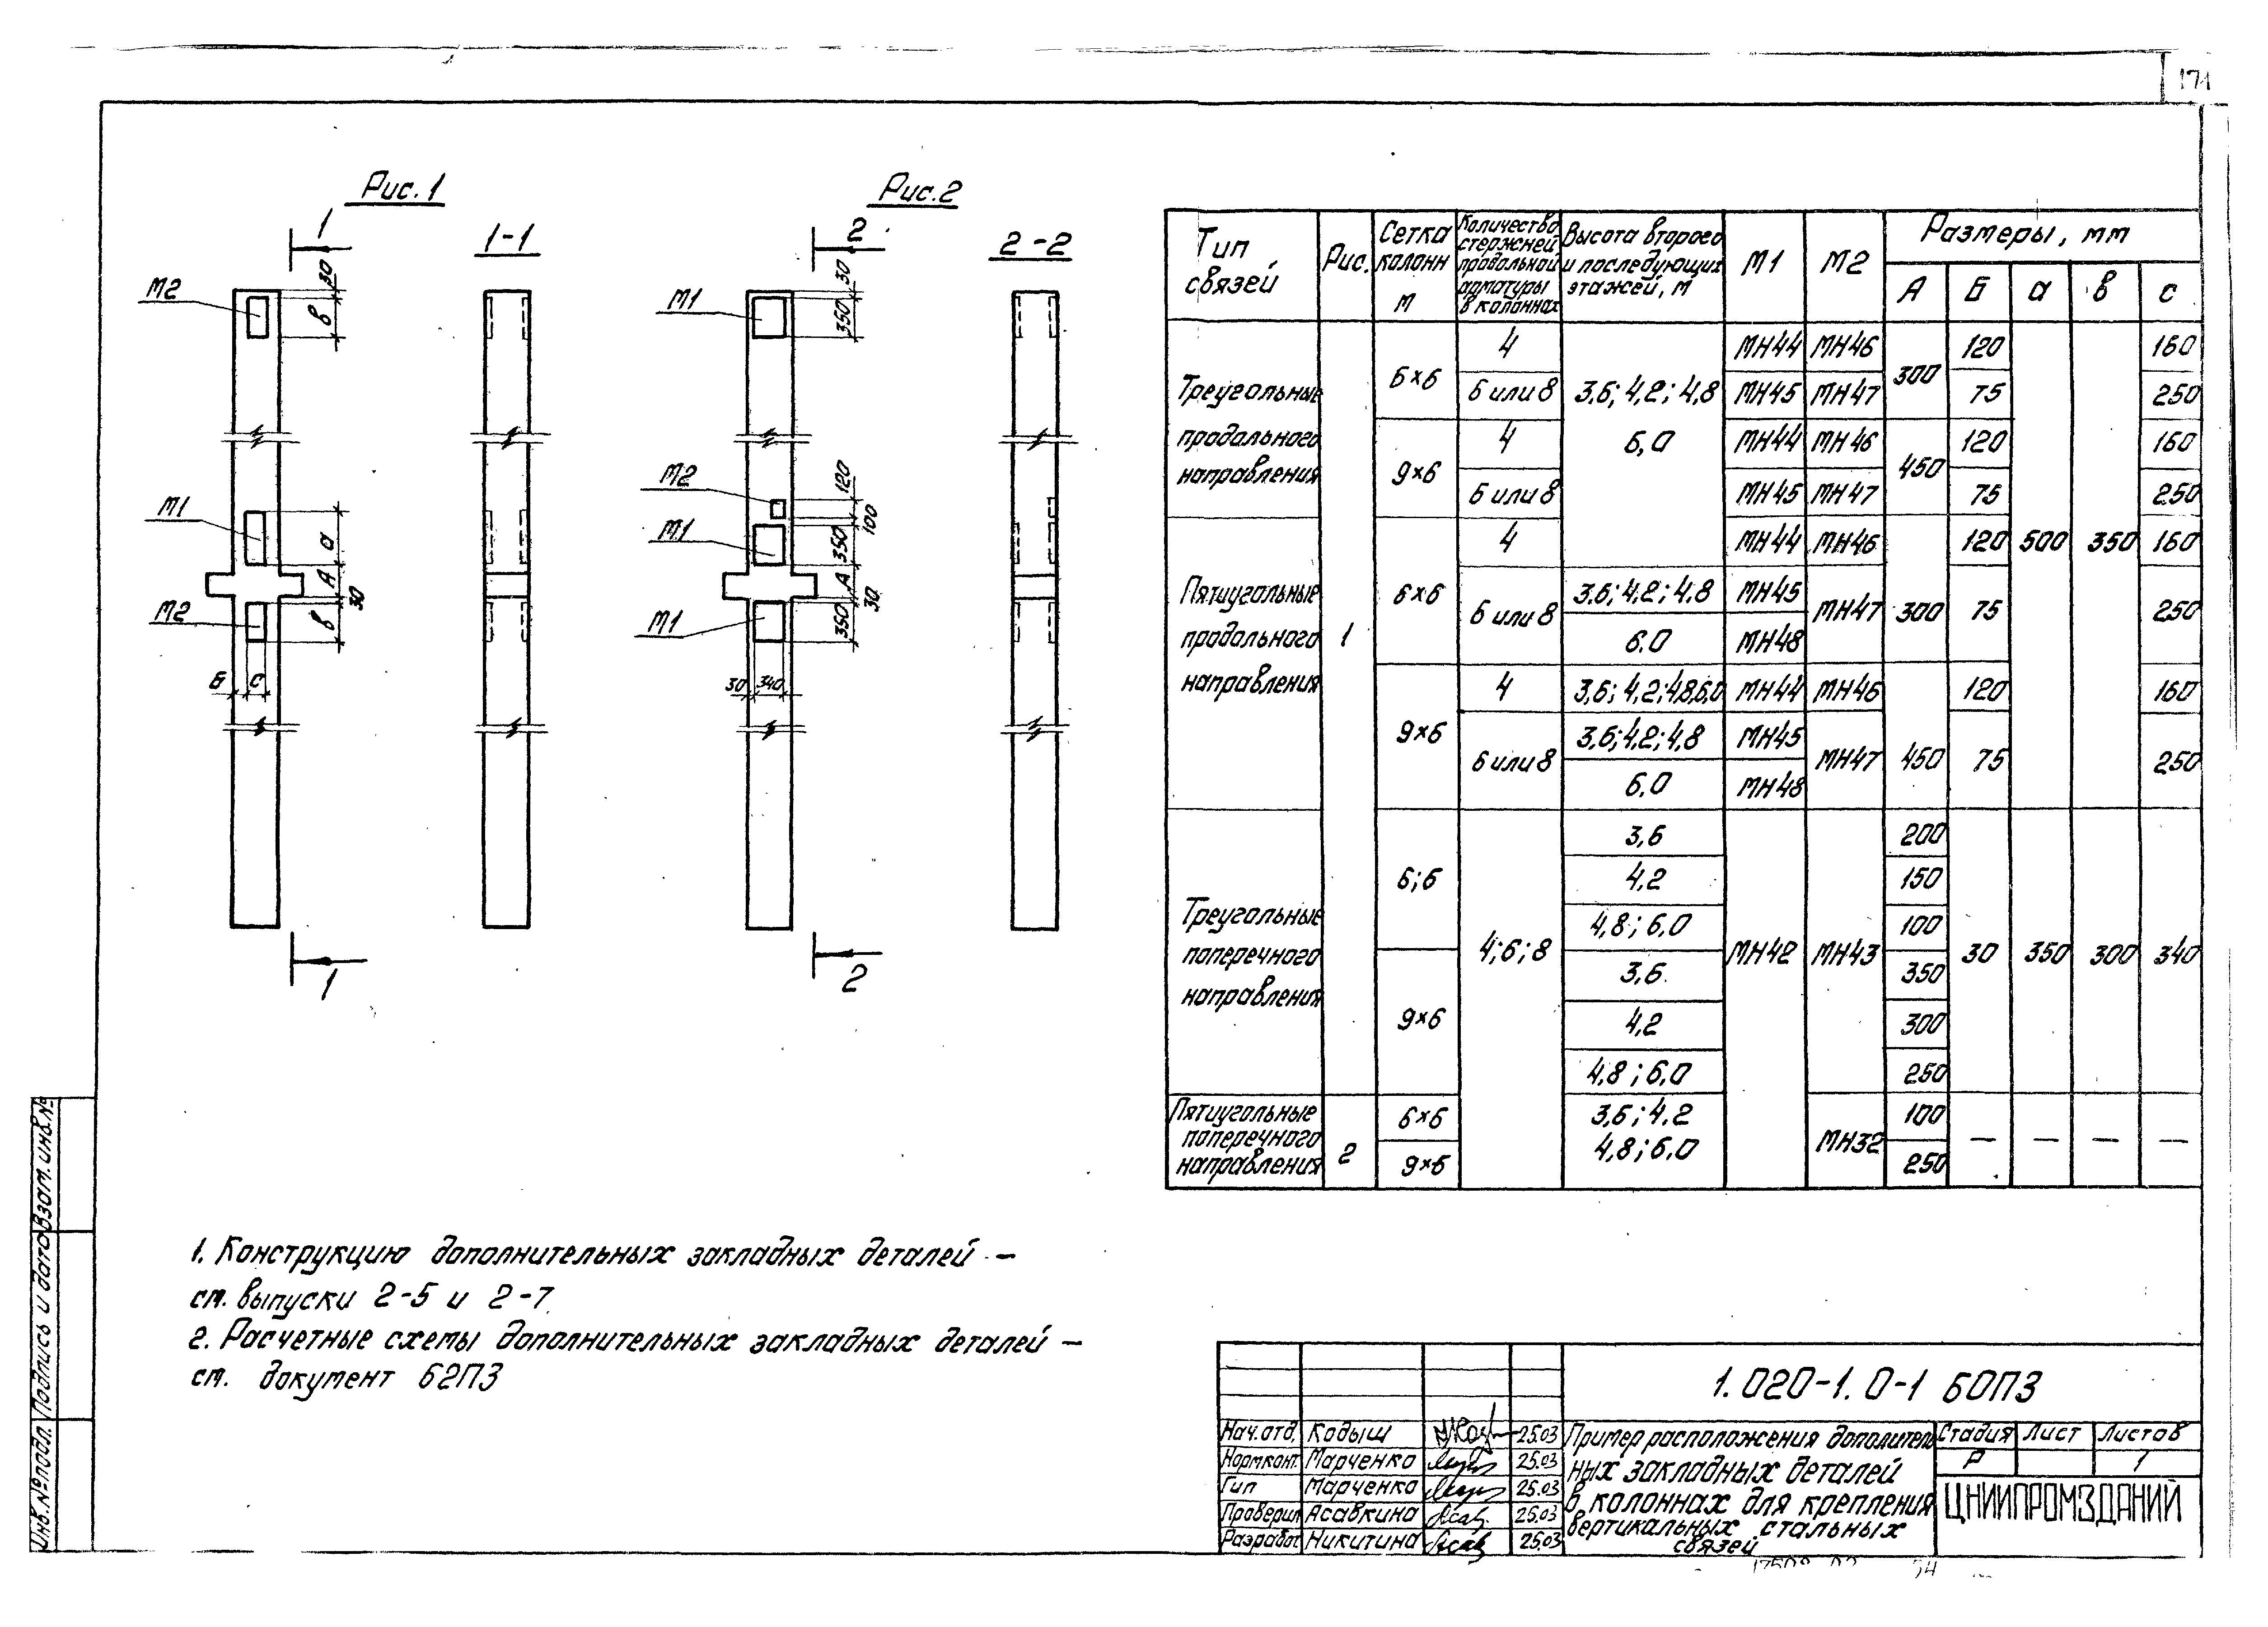 171
Рис. 1
Рис. 2
1
1-1
2
2-2
М2
30
в
М1
30
350
М1
а
А
30
М2
в
Б
с
М2
120
100
М1
350
А
30
М1
350
30
340
1
2
Тип связей
Рис.
Сетка колонн м
Количество стержней продольной арматуры в колоннах
Высота второго и последующих этажей, м
М1
М2
Размеры, мм
А
Б
а
в
с
Треугольные продольного направления
1
6×6
4
3,6; 4,2; 4,8
6,0
МН44
МН46
300
120
500
350
160
6 или 8
МН45
МН47
75
250
9×6
4
МН44
МН46
450
120
160
6 или 8
МН45
МН47
75
250
Пятиугольные продольного направления
6×6
4
МН44
МН46
300
120
160
6 или 8
3,6; 4,2; 4,8
МН45
МН47
75
250
6.0
МН48
9×6
4
3,6; 4,2; 4,8; 6,0
МН44
МН46
450
120
160
6 или 8
3,6; 4,2; 4,8
МН45
МН47
75
250
6,0
МН48
Треугольные поперечного направления
6;6
4;6;8
3,6
МН42
МН43
200
30
350
300
340
4,2
150
4,8; 6,0
100
9×6
3,6
350
4,2
300
4,8; 6,0
250
Пятиугольные поперечного направления
2
6×6
3,6; 4,2
4,8; 6,0
МН32
100
— — — —
9×6
250
1. Конструкцию дополнительных закладных деталей –
ст. выпуски 2-5 и 2-7
2. Расчетные схемы дополнительных закладных деталей –
ст. документ 62ПЗ
1.020-1.0-1 60ПЗ
Нач.отд. Кодыш 25.03
Нормконт. Марченко 25.03
Гип Марченко 25.03
Проверил Асавкина 25.03
Разработ. Никитина 25.03
Пример расположения дополнитель
ных закладных деталей
в колоннах для крепления
вертикальных стальных
связей
Стадия Лист Листов
Р 1
ЦНИИПРОМЗДАНИЙ
Инв.№подл. Подпись и дата Взам.инв.№